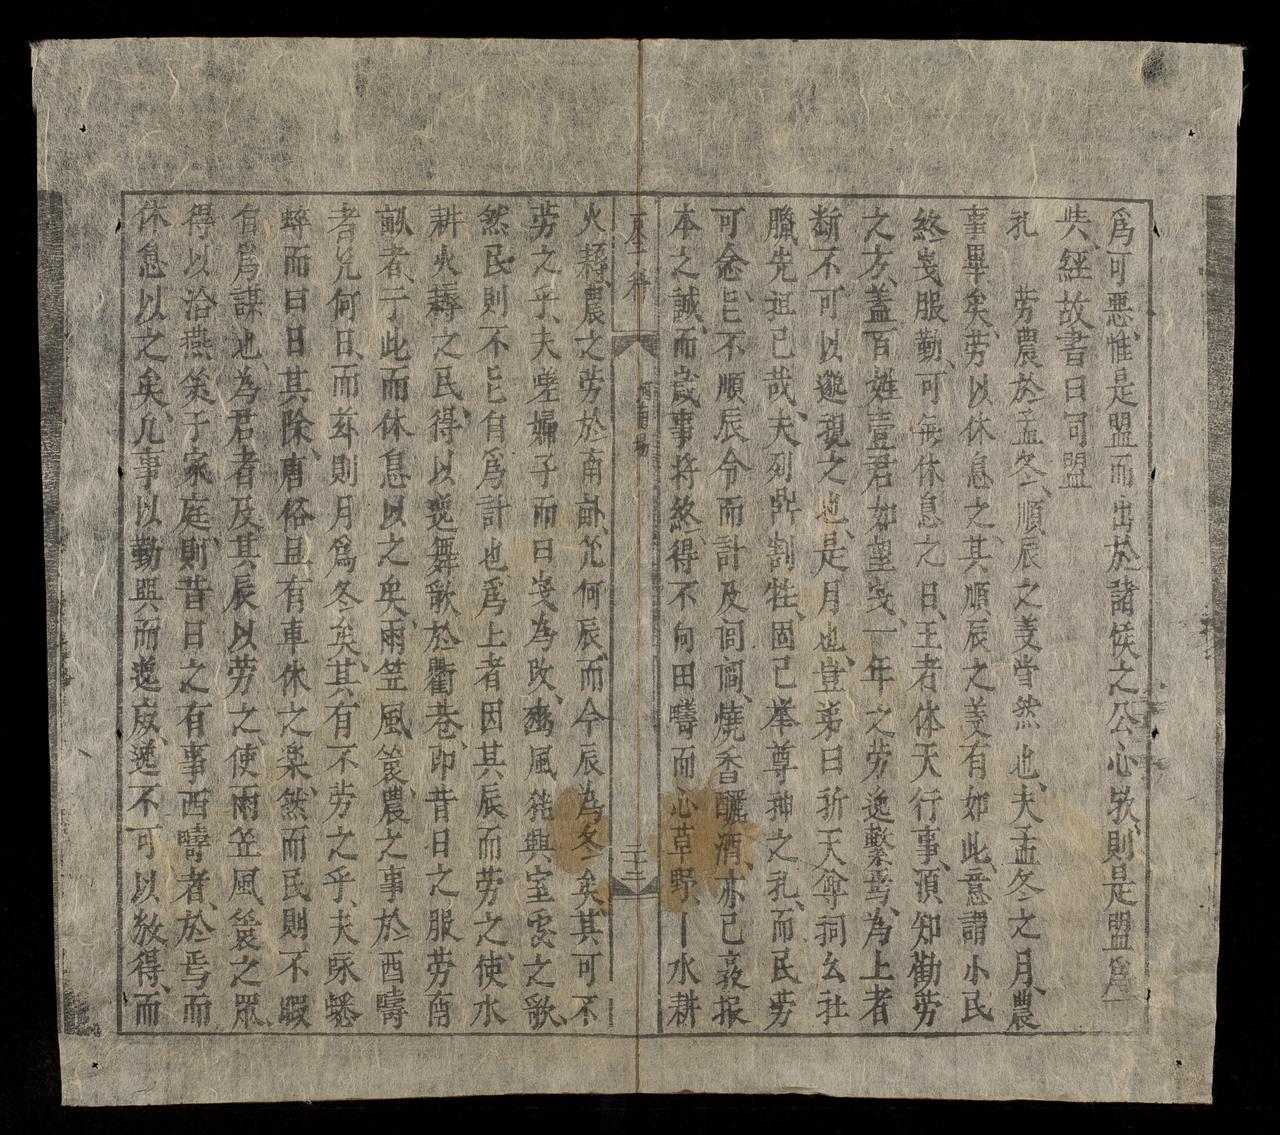 爲可惡、惟是盟而出於諸侯之公心欤、則是盟爲一
典、經故書曰同盟
礼 劳農於孟冬、順辰之义當然也、夫孟冬之月、農
事畢矣、劳以休息之、其順辰之义有如此、意謂小民
終歲服勤、可無休息之日、王者体天行事、須知勸劳
之方、蓋百姓壹君如望歲、一年之劳逸繫焉、為上者
断不可以邈視之也、是月也、豈第曰祈天尊祠公社
臘先祖已哉、夫列俎割牲、固已举尊神之礼、而民劳
可念、岂不順辰令而計及闾阎、燒香釃酒、亦已表报
本之誠、而歲事将終、得不向田疇而心草野、水耕
火耨、農之劳於南畝、笕何辰、而今辰為冬矣、其可不
劳之乎、夫嗟婦子而曰歲為改、豳風能興室處之歌、
然民則不岂自爲計也、爲上者因其辰而劳之、使水
耕火耨之民、得以逸舞歌於衢巷、即昔日之服劳南
畝者、于此而休息以之矣、雨笠風簑、農之事於西疇
者、笕何日、而玆則月爲冬矣、其有不劳之乎、夫咏蟋
蟀而曰日其除、唐俗且有車休之楽、然而民則不暇
自爲謀也、為君者及其辰以劳之、使雨笠風簑之眾、
得以洽燕笑于家庭、則昔日之有事西疇者、於焉而
休息以之矣、凡事以勤興而逸废、逸不可以敎得、而